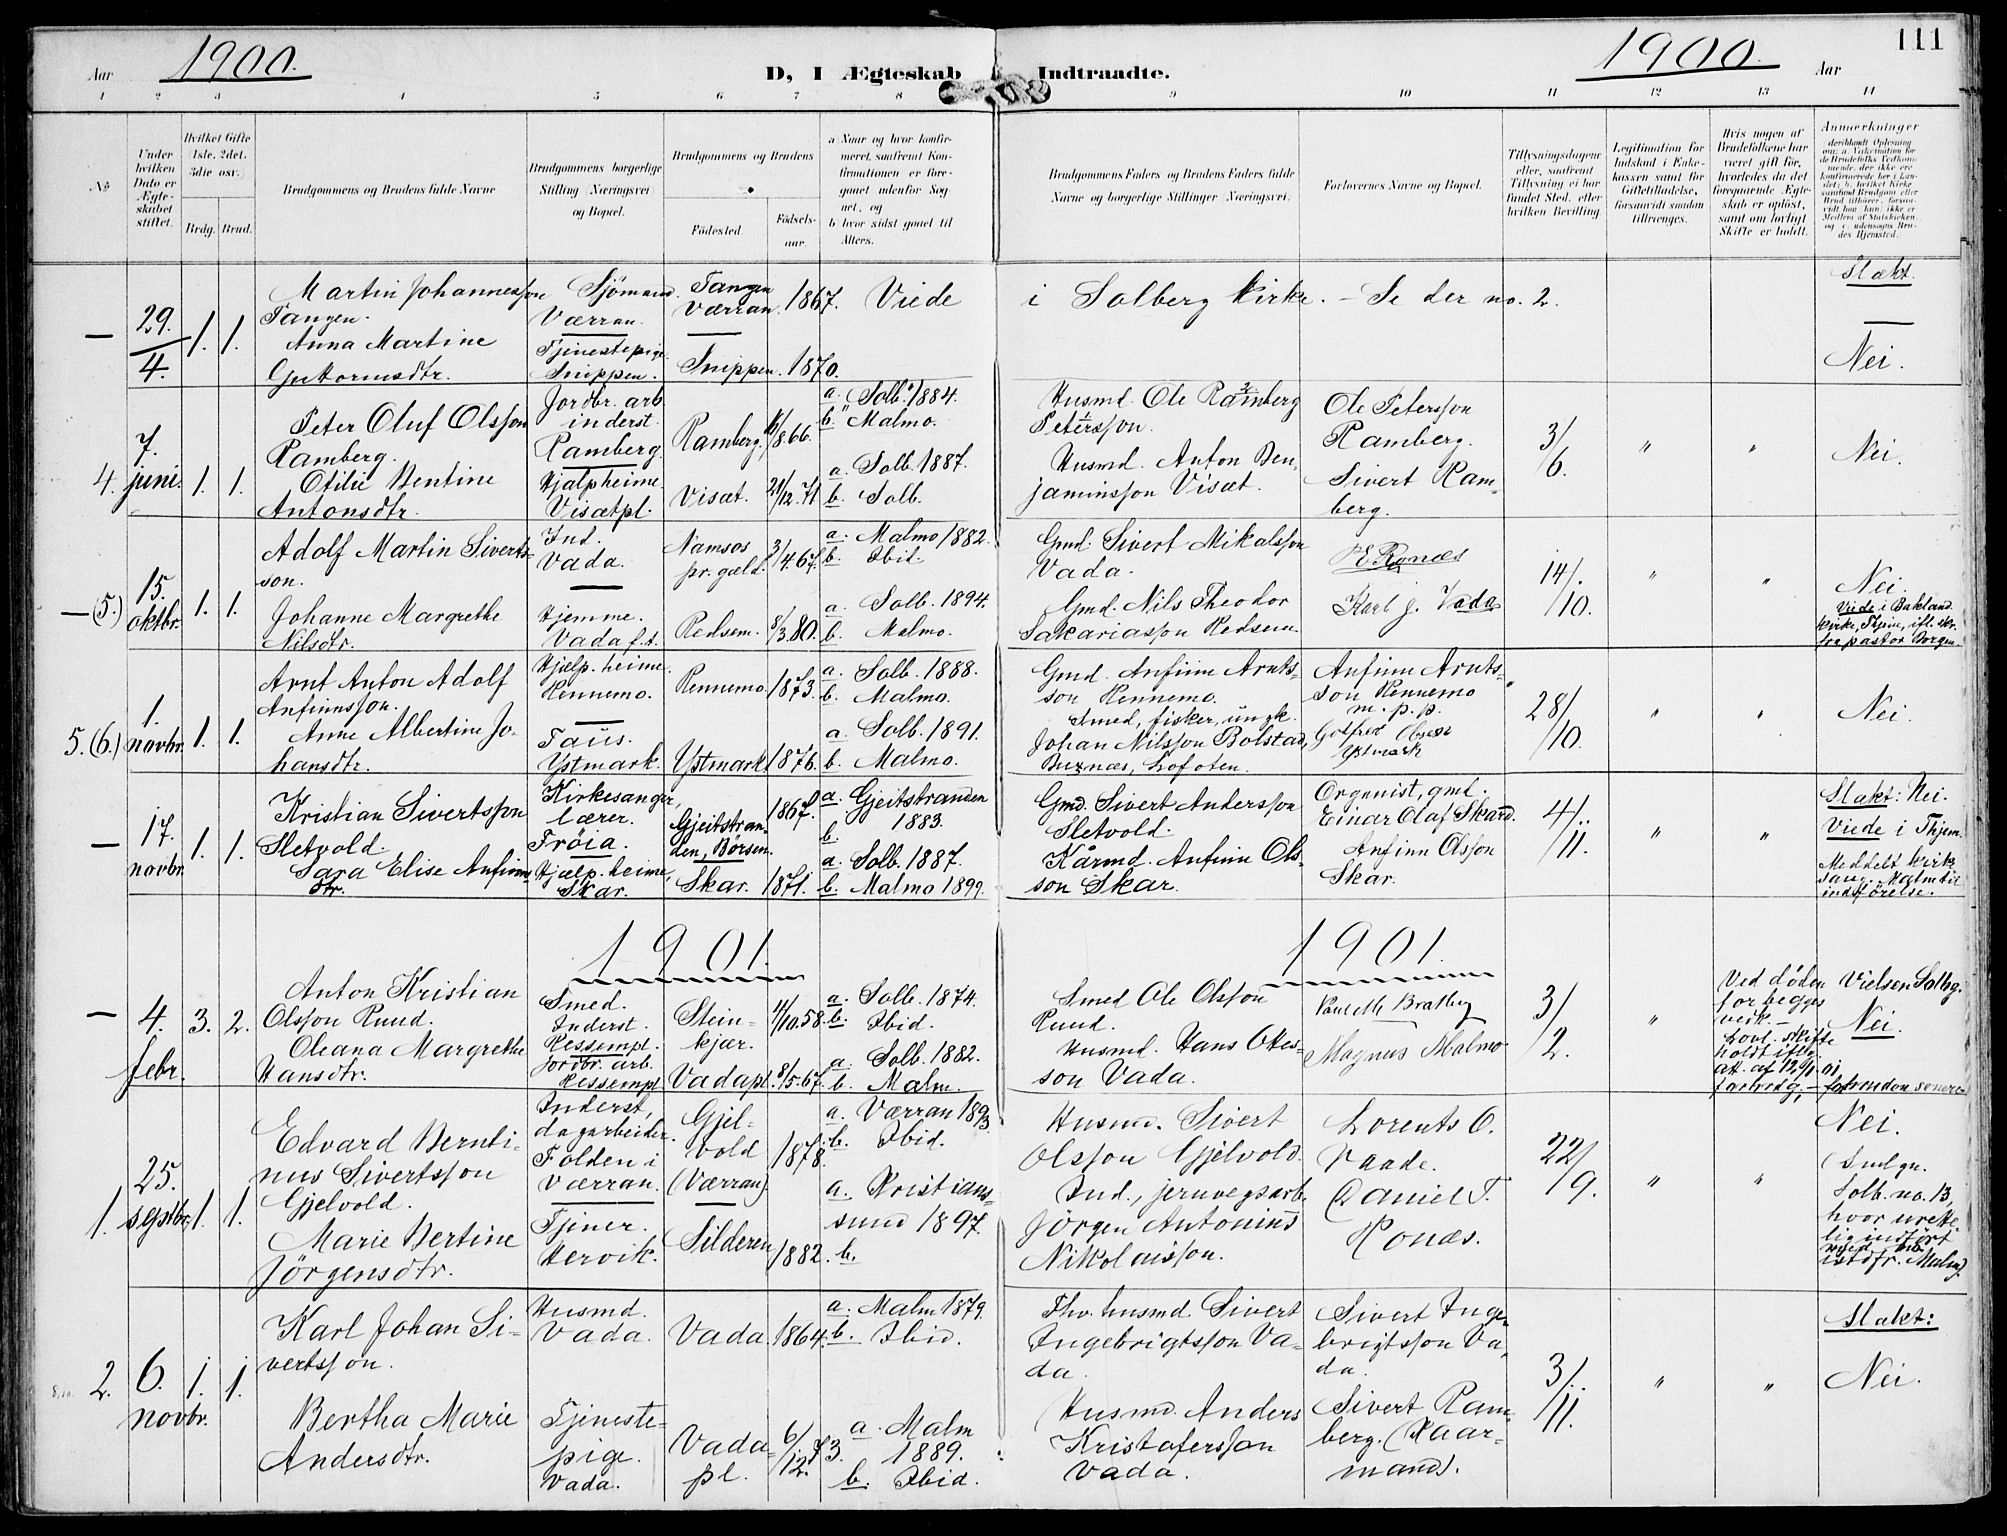 111
Aar 1900.
D, I Ægteskab Indtraadte.
1900. Aar
1 2 3 4 5 6 7 8 9 10 11 12 13 14
No
Under hvilken Dato er Ægteskabet stiftet.
Hvilket Gifte 1ste, 2det, 3die osv.
Brdg. Brud.
Brudgommens og Brudens fulde Navne
Brudgommens borgerlige Stilling (Næringsvei) og Bopæl.
Brudgommens og Brudens
Fødested. Fødselsaar.
a Naar og hvor konfirmeret, saafremt Konfirmationen er foregaaet udenfor Sognet, og
b hvor sidst gaaet til Alters.
Brudgommens Faders og Brudens Faders fulde Navne og borgerlige Stillinger (Næringsvei).
Forlovernes Navne og Bopæl.
Tillysningsdagene eller, saafremt Tillysning ei har fundet Sted, efter hvilken Bevilling.
Legitimation for Indskud i Enkekassen samt for Giftetilladelse, forsaavidt saadan tiltrænges.
Hvis nogen af Brudefolkene har været gift før, hvorledes da det foregaaende Ægteskab er opløst, samt om lovligt Skifte er holdt.
Anmerkninger
— 29./4. 1. 1.
Martin Johannesson Tangen.
Sjömand. Værran.
Tangen Værran. 1867.
Viede i Solberg Kirke. – Se der no. 2.
Slækt.
Anna Martine Guttormsdtr.
Tjenestepige Snippen.
Snippen. 1870.
Nei.
4. 7. juni. 1. 1.
Peter Oluf Olsson Ramberg.
Jordbr. arb inderst. Ramberg.
Ramberg. 8.66.
a. Solb. 1884.
b. Malmo.
Husmd. Ole Ramberg Petersson.
Ole Petersson Ramberg.
3/6. " " Nei.
Otilie Bentine Antonsdtr.
Hjælp heime. Visætpl.
Visæt. 21/12.71
a. Solb. 1887.
b. Solb.
Husmd. Anton Benjaminsson Visæt.
Sivert Ramberg.
— (5.) 15. oktbr. 1. 1.
Adolf Martin Sivertsson.
Ind. Vada.
Namsos pr.gæld. 3/4.67.
a. Malmo 1882.
b. Ibid.
Gmd. Sivert Mikalsson Vada.
14/10. " "
Nei.
Johanne Margrethe Nilsdtr.
Hjemme. Vada f.t.
Redsem. 8/3.80.
a. Solb. 1894.
b. Malmo.
Gmd. Nils Theodor Sakariasson Redsem
Karl J. Vada
Viede i Bakland. kirke, Thjem, ifl. skr. fra pastor Borgen.
5. (6.) 1. novbr. 1. 1.
Arnt Anton Adolf Anfinnsson.
Hjælp. heime. Rennemo.
Rennemo. 1873.
a. Solb. 1888.
b. Malmo.
Gmd. Anfinn Arntsson Rennemo.
Anfinn Arntsson Rennemo m. p. p.
28/10. " " Nei.
Anne Albertine Johansdtr.
Taus. Ystmark.
Ystmark 1876.
a. Solb. 1891.
b. Malmo.
Smed, fisker, ungk. Johan Nilsson Bolstad, Buxnæs, Lofoten.
Gotfred Olsen Ystmark
— 17. novbr. 1. 1.
Kristian Sivertsson Sletvold.
Kirkesanger, lærer. Fröia.
Gjeitstranden, Börsen. 1867.
a. Gjeitstranden 1883.
b.
Gmd. Sivert Andersson Sletvold.
Organist, gmd. Einar Olaf Skard.
4/11. " "
Slækt: Nei.
Viede i Thjem.
Sara Elise Anfinnsdtr.
Hjælp. heime, Skar.
Skar. 1871.
a. Solb. 1887.
b. Malmo 1899.
Kårmd. Anfinn Olsson Skar.
Anfinn Olsson Skar.
Meddelt kirkesang. Malm til indförelse.
1901. 1901.
— 4. febr. 3. 2.
Anton Kristian Olsson Ruud.
Smed. Inderst. Ressempl.
Steinkjær. 4/10.58.
a. Solb. 1874.
b. Ibid.
Smed Ole Olsson Ruud.
Paul M Bratberg
3/2. "
Ved döden for begges vedk – Lovl. Skifte holdt iflg. att. af 12/1 01, for brdg, – for bruden senere
Vielsen Solbg.
Nei
Oleana Margrethe Hansdtr.
Jordbr. arb. Ressempl
Vadapl. 8/5.67.
a. Solb. 1882.
b. Malm.
Husmd. Hans Olesson Vada.
Magnus Malmo
1. 25. septbr. 1. 1.
Edvard Berntinus Sivertsson Gjelvold.
Inderst, dagarbeider. Folden i Værran.
Gjelvold (Værran). 1878.
a. Værran 1893.
b. Ibid.
Husmd. Sivert Olsson Gjelvold.
Lorents O. Vaade.
22/9. " "
Nei.
(Smlgn. Solb. no. 13, hvor urettelig indfört
Marie Bertine Jörgensdtr.
Tjener. Hervik.
Silderen 1882.
a. Kristianssund 1897.
b.
Ind., jernvegsarb. Jörgen Antonius Nikolaisson.
Daniel T. Ronæs.
2. 6. novbr. 1. 1.
Karl Johan Sivertsson.
Husmd. Vada.
Vada. 1864.
a. Malm 1879.
b. Ibid.
Fhv. husmd. Sivert Ingebrigtsson Vada.
Sivert Ingebrigtsson Vada.
3/11. " "
Slækt:
Nei.
Bertha Marie Andersdtr.
Tjenestepige. Vada.
Vadapl. 6/12.73.
a. Malm 1889.
b. Ibid.
Husmd. Anders Kristofersson Vada.
Sivert Ramberg. (Kaarmand).